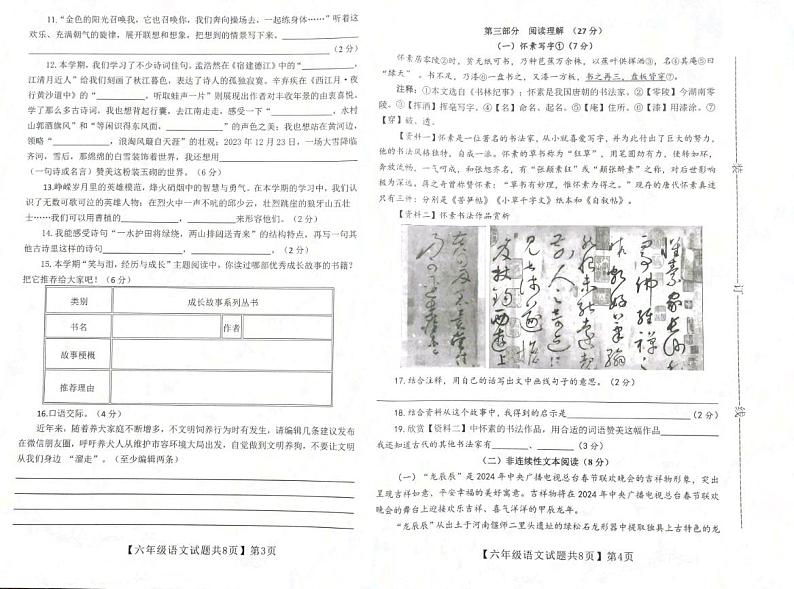 11.“金色的阳光召唤我，它也召唤你，我们奔向操场去，一起练身体……”听着这
欢乐、充满朝气的旋律，展开联想和想象，把想到的情景写下来。
（2 分）
12.本学期，我们学习了不少诗词佳句。孟浩然在《宿建德江》中的“
江清月近人”给我们刻画了秋江暮色，表达了诗人的孤独寂寞。辛弃疾在《西江月·夜
行黄沙道中》的“，听取蛙声一片”则展现出作者对丰收年景的由衷喜悦。
学了那么多古诗词，我也想背起行囊，去江南走走，感受一下“，水村
山郭酒旗风”和“等闲识得东风面，”的声色之美；我也想站在黄河边，
领略“，浪淘风簸自天涯”的壮观；2023 年 12 月 23 日，一场大雪降临
齐河，雪后，那绵绵的白雪装饰着世界，我还想用
（一句诗或名言）赞美这粉装玉砌的世界。（6 分）
13.峥嵘岁月里的英雄模范，烽火硝烟中的智慧与勇气。在本学期的学习中，我们认
识了无数可歌可泣的英雄人物；在烈火中一声不吭的邱少云，壮烈跳崖的狼牙山五壮
士……我们可以用曹植的，来形容他们。（2 分）
14.我能感受诗句“一水护田将绿绕，两山排闼送青来”的结构特点，再写一句其
他古诗里这样的诗句，。（2 分）
15.本学期“笑与泪，经历与成长”主题阅读中，你读过哪部优秀成长故事的书籍？
把它推荐给大家吧！（6 分）
类别 成长故事系列丛书
书名 作者
故事梗概
推荐理由
16.口语交际。（4 分）
近年来，随着养犬家庭不断增多，不文明饲养行为时有发生，请编辑几条建议发布
在微信朋友圈，呼吁养犬人从维护市容环境大局出发，自觉做到文明养狗，不要让文明
从我们身边 “溜走”。（至少编辑两条）
【六年级语文试题共8页】第3页
第三部分 阅读理解 （27 分）
（一）怀素写字①（7 分）
怀素居零陵②时，贫无纸可书，乃种芭蕉万余株，以蕉叶供挥洒③，名④其庵⑤曰
“绿天”。书不足，乃漆⑥一盘书之，又漆一方板，书之再三，盘板皆穿⑦。
注释：①本文选自《书林纪事》；怀素是我国唐朝的书法家。②【零陵】今湖南零
陵。③【挥洒】挥毫写字。④【名】命名、起名。⑤【庵】住所。⑥【漆】用漆涂。⑦
【穿】破、透。
【资料一】怀素是一位著名的书法家，从小就喜爱写字，并为此付出了巨大的努力。
他的书法风格独特，自成一派。怀素的草书称为“狂草”，用笔圆劲有力，使转如环，
奔放流畅，一气呵成，和张旭齐名，有“张颠素狂”或“颠张醉素”之称，对后世影响
极为深远。蒋之奇曾称赞怀素：“草书有妙理，惟怀素为得之。”现存的唐代怀素真迹
只有三件：分别是《苦笋帖》《小草千字文》纸本和《自叙帖》。
【资料二】怀素书法作品赏析
17.结合注释，用自己的话写出文中画线句子的意思。（2 分）
18.结合资料从这个故事中，我得到的启示是（2 分）
19.欣赏【资料二】中怀素的书法作品，用合适的词语赞美这幅作品
我还知道古代的其他书法家有、（3 分）
（二）非连续性文本阅读（8 分）
（一）“龙辰辰”是 2024 年中央广播电视总台春节联欢晚会的吉祥物形象，突出
呈现吉祥如意、平安幸福的美好寓意。吉祥物将在 2024 年中央广播电视总台春节联欢
晚会的舞台上迎接欢乐吉祥、喜气洋洋的甲辰龙年。
“龙辰辰”从出土于河南偃师二里头遗址的绿松石龙形器中提取独具上古特色的龙
【六年级语文试题共8页】第4页
订
线